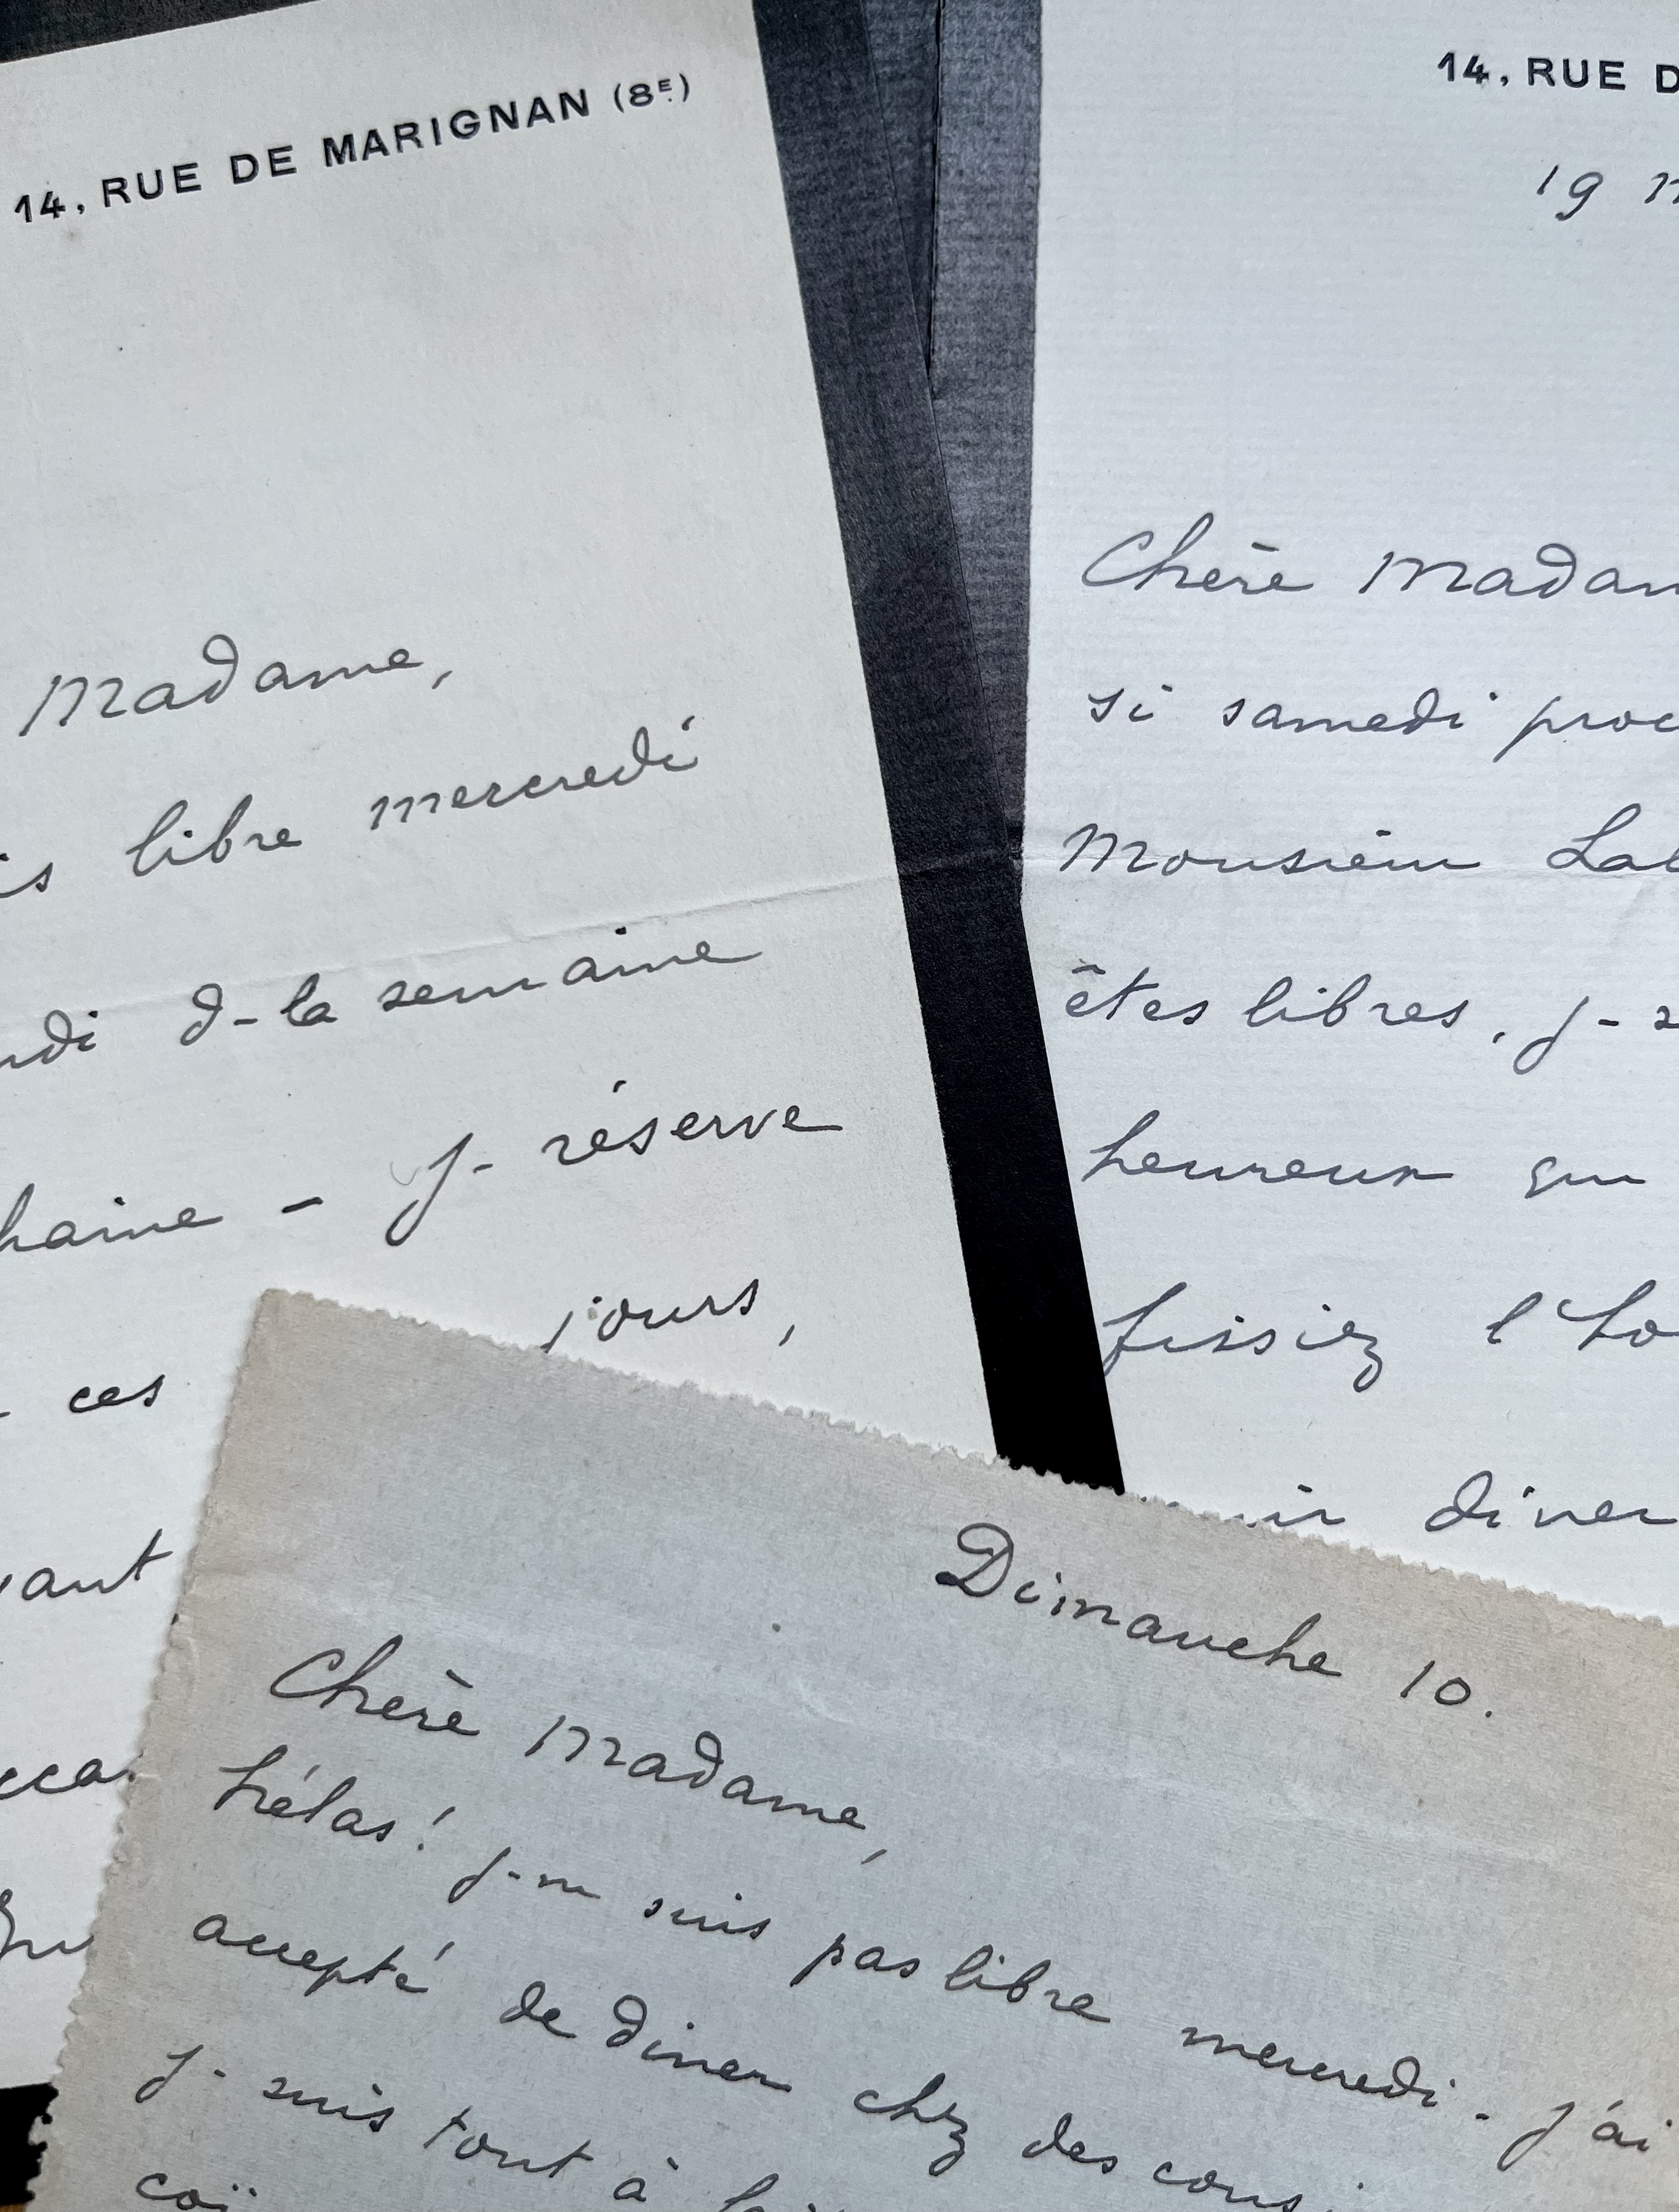 14, RUE DE MARIGNAN (8E)
Madame,
is libre mercredi
di d- la semaine
haine - j- réserve
ces jours,
vant
14, RUE D
19
Chère Madam
si samedi proc
Monsieur Lab
êtes libres, j- s
heureux qu
fissiez l'ho
ir diner
Dimanche 10.
Chère Madame,
hélas! j- n suis pas libre mercredi - j'ai
accepté de diner chez des cous
j- suis tout à
coï